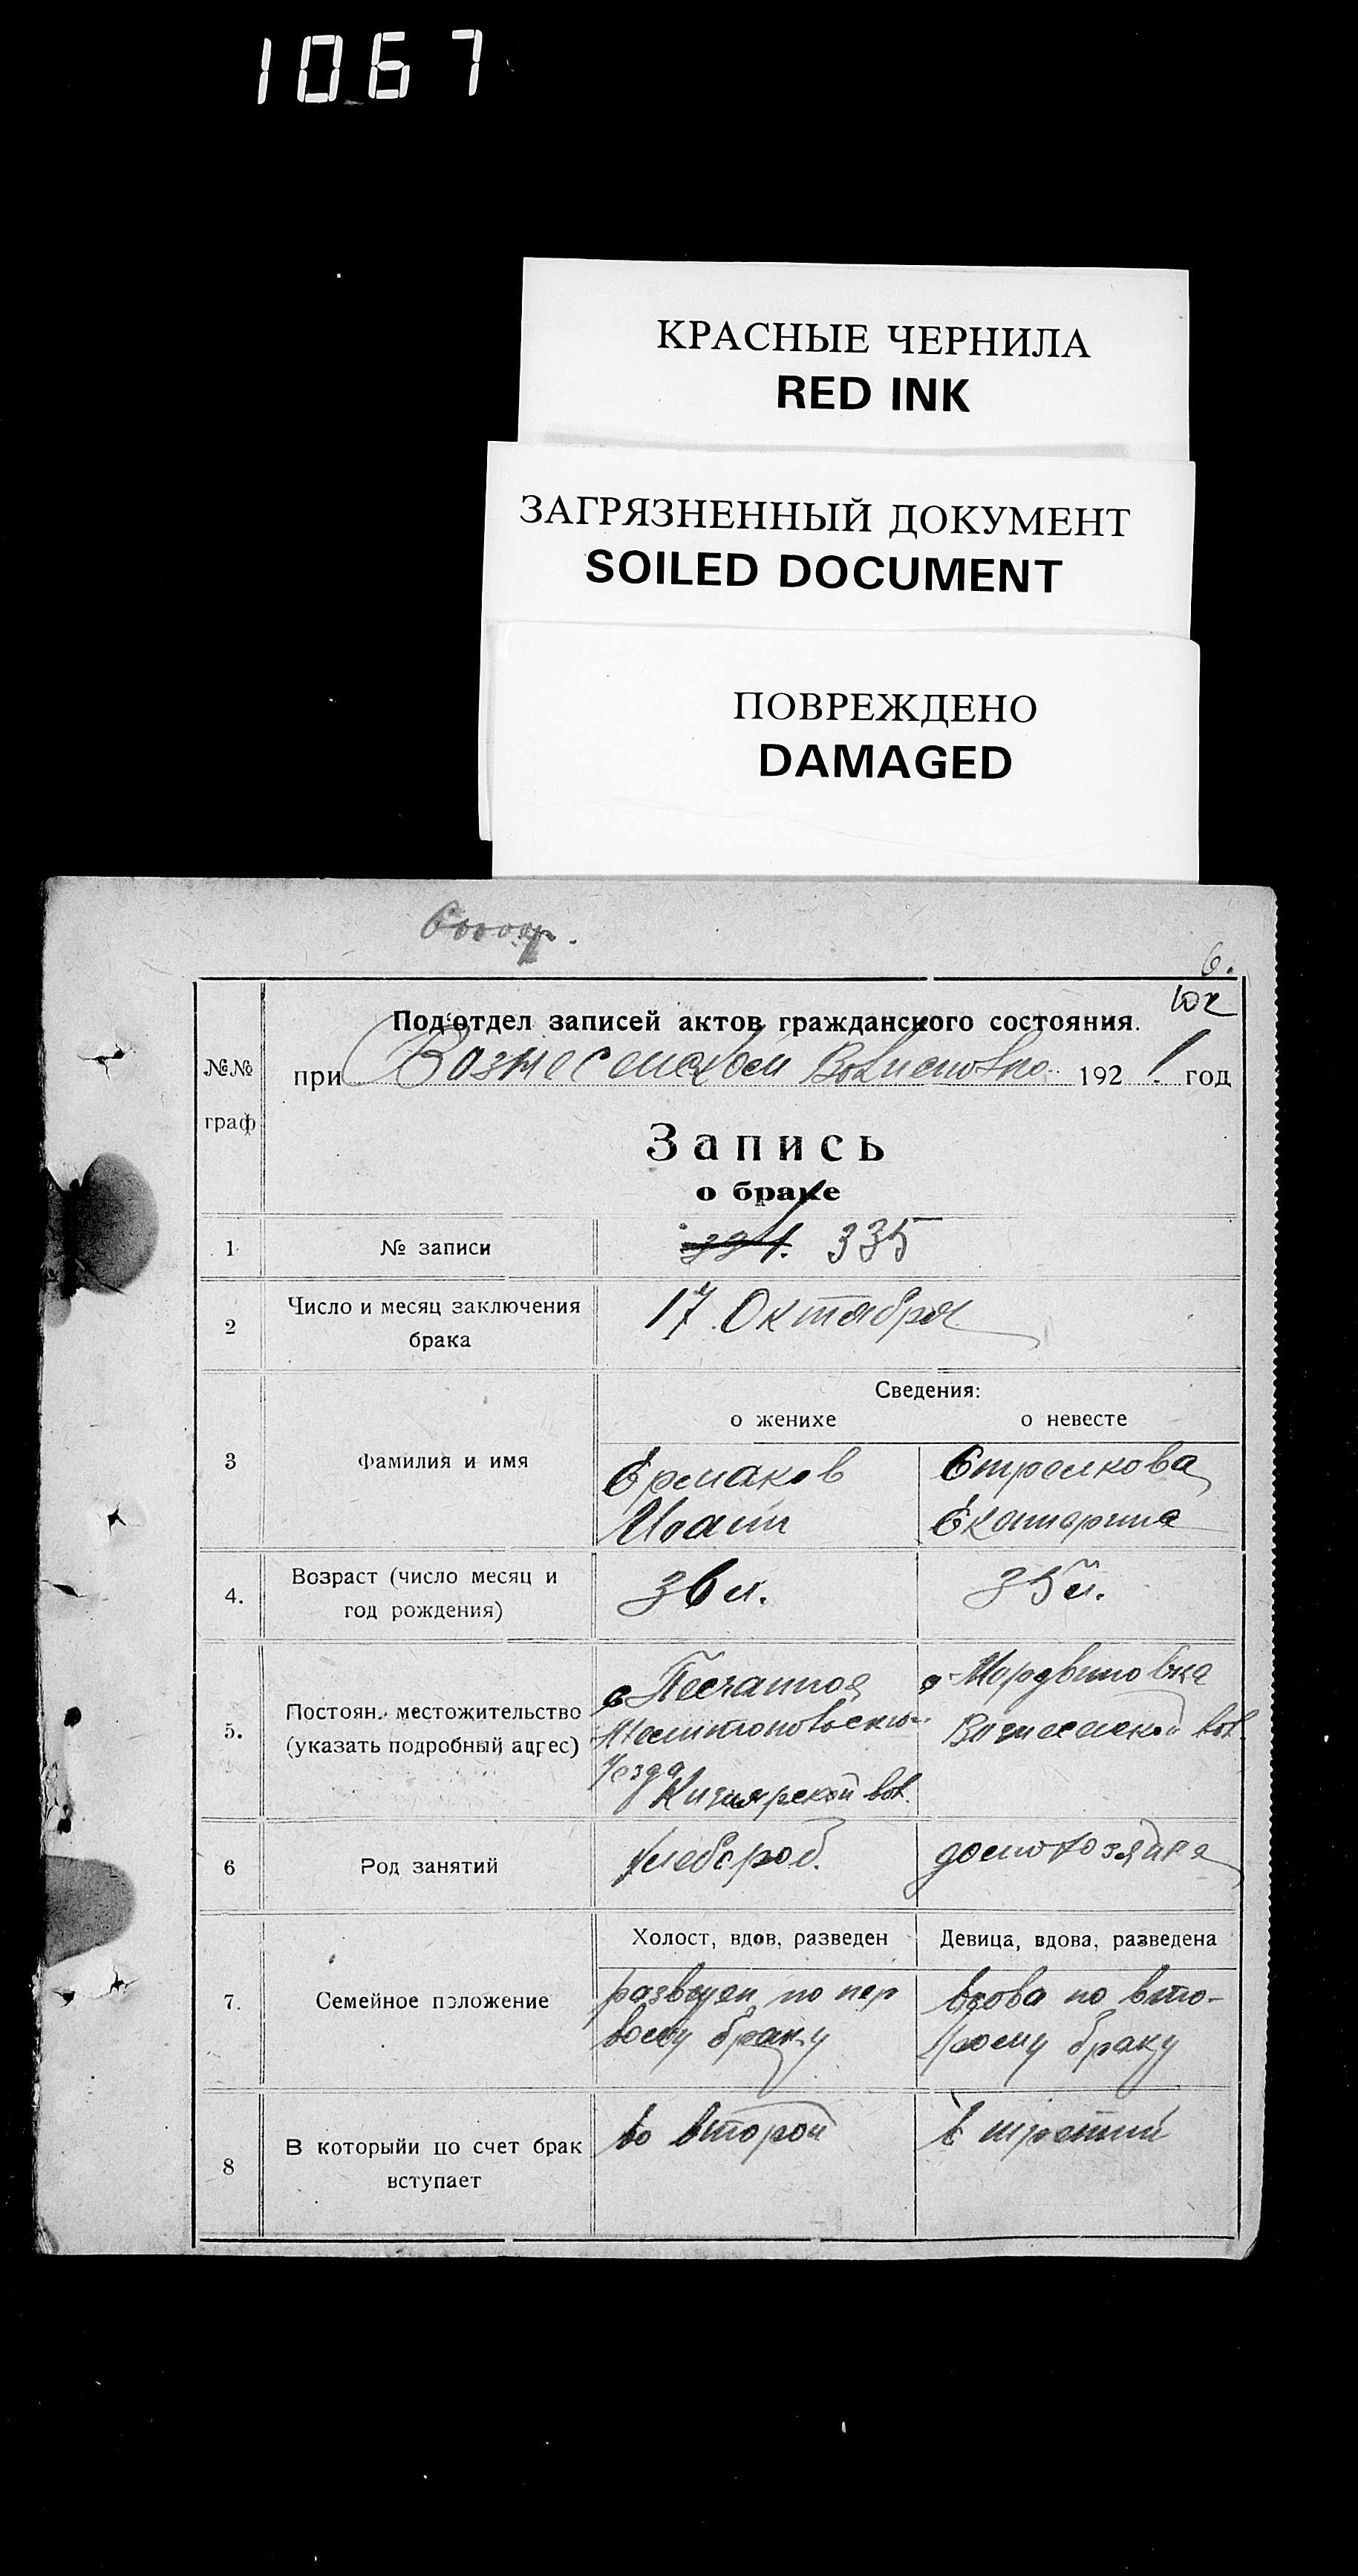 1067
КРАСНЫЕ ЧЕРНИЛА
RED INK
ЗАГРЯЗНЕННЫЙ ДОКУМЕНТ
SOILED DOCUMENT
ПОВРЕЖДЕНО
DAMAGED
6.
102
Под'отдел записей актов гражданского состояния.
№№ граф
при Вознесенском Волисполко 1921 год
Запись
о браке
1 № записи 335
2 Число и месяц заключения 17 Октября
брака
Сведения:
о женихе о невесте
3 Фамилия и имя Ермаков Стрелкова
Иван Екатерина
4. Возраст (число месяц и 36 л. 35 л.
год рождения)
5. Постоян. местожительство с Песчанное с Мордвиновка
(указать подробный адрес) Мелитопольского Вознесенской вол.
Уезда
Кизиярской вол.
6 Род занятий хлебороб. домохозяйка
Холост, вдов, разведен Девица, вдова, разведена
7. Семейное положение разведен по пер вдова по вто-
вому браку рому браку
8 В которыйи по счет брак во второй в третий
вступает